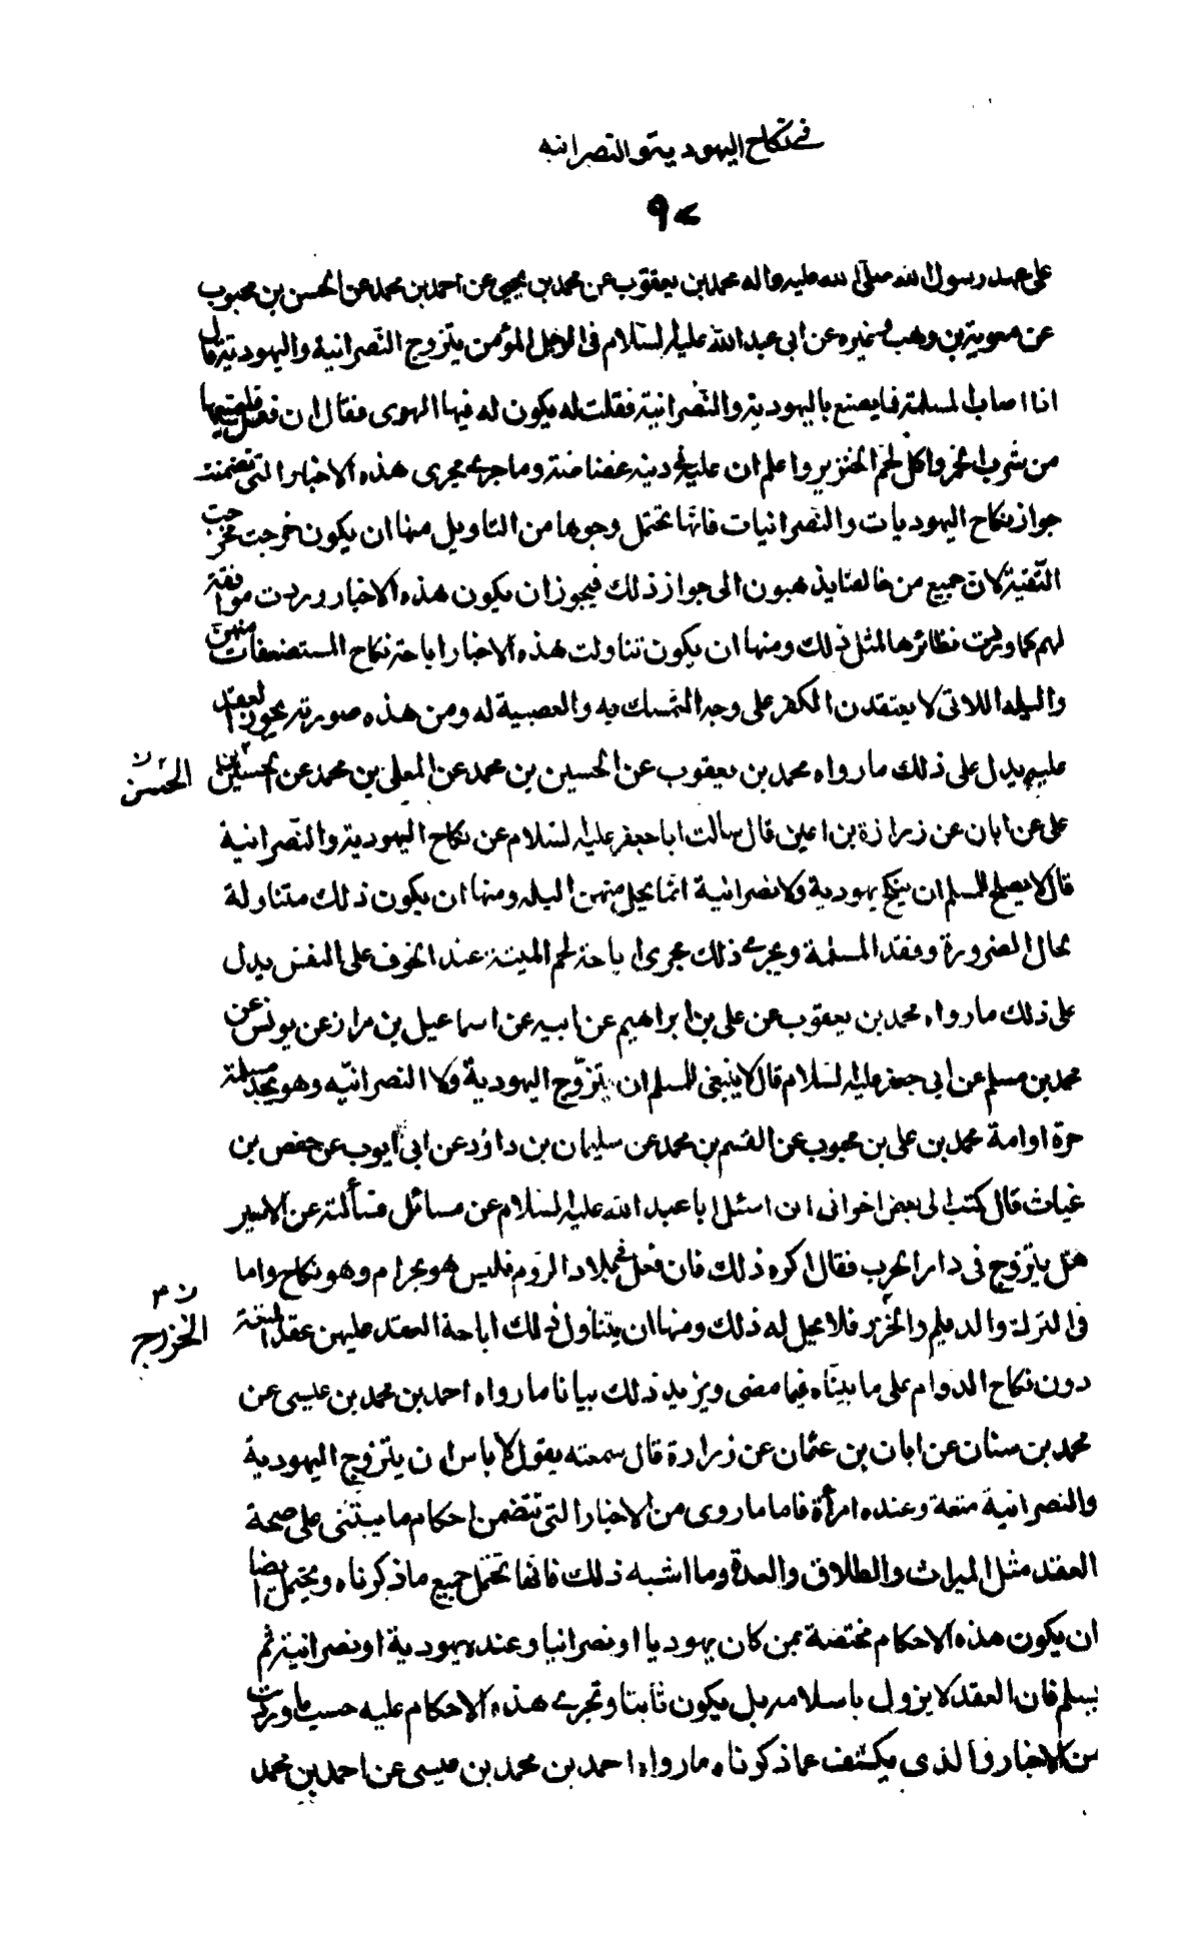 في نكاح اليهودية والنصرانية
٩٧
على عهد رسول الله صلى الله عليه واله محمد بن يعقوب عن محمد بن يحيى عن احمد بن محمد عن الحسن بن محبوب
عن معوية بن وهب وغيره عن ابى عبد الله عليه السلام فى الرجل المؤمن يتزوج النصرانية واليهودية قال
اذا اصاب المسلمة فما يصنع باليهودية والنصرانية فقلت له يكون له فيها الهوى فقال ان فعل فليمنعها
من شرب الخمر واكل لحم الخنزير واعلم ان عليه في دينه غضاضة وما جرى مجرى هذه الاخبار التى تضمنت
جواز نكاح اليهوديات والنصرانيات فانها تحتمل وجوها من التاويل منها ان يكون خرجت مخرجت
التقية لان جميع من خالفنا يذهبون الى جواز ذلك فيجوز ان يكون هذه الاخبار وردت موافقة
لهم كما وردت نظائرها لمثل ذلك ومنها ان يكون تناولت هذه الاخبار اباحة نكاح المستضعفات منهن
والبله اللاتى لا يعتقدن الكفر على وجه التمسك به والعصبية له ومن هذه صورته يجوز العقد
عليه يدل على ذلك ما رواه محمد بن يعقوب عن الحسين بن محمد عن المعلى بن محمد عن الحسين بن
الحسن ن
على عن ابان عن زرارة بن اعين قال سالت ابا جعفر عليه السلام عن نكاح اليهودية والنصرانية
قال لا يصلح للمسلم ان ينكح يهودية ولا نصرانية انما يحل منهن البله ومنها ان يكون ذلك متناولة
لحال الضرورة وفقد المسلمة ويجرى ذلك مجرى اباحة لحم الميتة عند الخوف على النفس يدل
على ذلك ما رواه محمد بن يعقوب عن على بن ابراهيم عن ابيه عن اسماعيل بن مرار عن يونس عن
محمد بن مسلم عن ابى جعفر عليه السلام قال لا ينبغى للمسلم ان يتزوج اليهودية ولا النصرانيه وهو يجد مسلمة
حرة او امة محمد بن على بن محبوب عن القسم بن محمد عن سليمان بن داؤد عن ابى ايوب عن حفص بن
غياث قال كتب الى بعض اخوانى ان اسئل ابا عبد الله عليه السلام عن مسائل فسألته عن الاسير
هل يتزوج فى دار الحرب فقال اكره ذلك فان فعل في بلاد الروم فليس هو بحرام وهو نكاح واما
فى الترك والديلم والخزر فلا يحل له ذلك ومنها ان يتناول ذلك اباحة العقد عليهن عقد المتعة
الخزرج ن م
دون نكاح الدوام على ما بيناه فيما مضى ويزيد ذلك بيانا ما رواه احمد بن محمد بن عيسى عن
محمد بن سنان عن ابان بن عثمان عن زرارة قال سمعته يقول لا باس ان يتزوج اليهودية
والنصرانية متعة وعنده امرأة فاما ما روى من الاخبار التى تتضمن احكام ما يبتنى على صحة
العقد مثل الميراث والطلاق والعدة وما اشبه ذلك فانها تحتمل جميع ما ذكرناه ويحتمل ايضا
ان يكون هذه الاحكام مختصة بمن كان يهوديا او نصرانيا وعنده يهودية او نصرانية ثم
يسلم فان العقد لا يزول باسلامه بل يكون ثابتا وتجرى هذه الاحكام عليه حسب ما وردت
من الاخبار والذى يكشف عما ذكرناه ما رواه احمد بن محمد بن عيسى عن احمد بن محمد